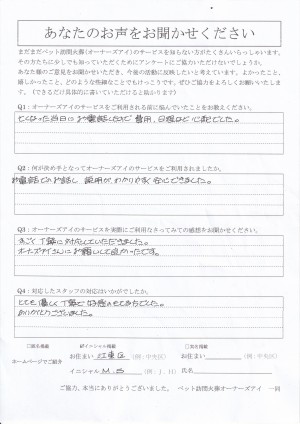 あなたのお声をお聞かせください
まだまだペット訪問火葬(オーナーズアイ)のサービスを知らない方がたくさんいらっしゃいます。
その方たちに少しでも知っていただくためにアンケートにご協力いただけないでしょうか。
あなた様のご意見をお聞かせいただき、今後の活動に反映したいと考えています。よかったこと、
嬉しかったこと、どのような些細なことでもけっこうです。ぜひご協力をよろしくお願いいたします。
(できるだけ具体的に書いていただけると助かります)
Q1：オーナーズアイのサービスをご利用される前に悩んでいたことをお教えください。
亡くなった当日にお電話したので費用、日程など心配でした。
Q2：何が決め手となってオーナーズアイのサービスをご利用されましたか。
お電話でのお話し 説明が、わかりやすく安心できました。
Q3：オーナーズアイのサービスを実際にご利用なさってみての感想をお聞かせください。
すごく丁寧に対応していただきました。
オーナーズアイさんにお願いして良かったです。
Q4：対応したスタッフの対応はいかがでしたか。
とても優しく丁寧で
ありがとうございました。
□匿名掲載 ☑イニシャル掲載 □実名掲載
ホームページでご紹介
お住まい 江東区 (例：中央区)
お住まい (例：中央区)
イニシャル M.S (例：J.H)
氏名
ご協力、本当にありがとうございました。 ペット訪問火葬オーナーズアイ 一同